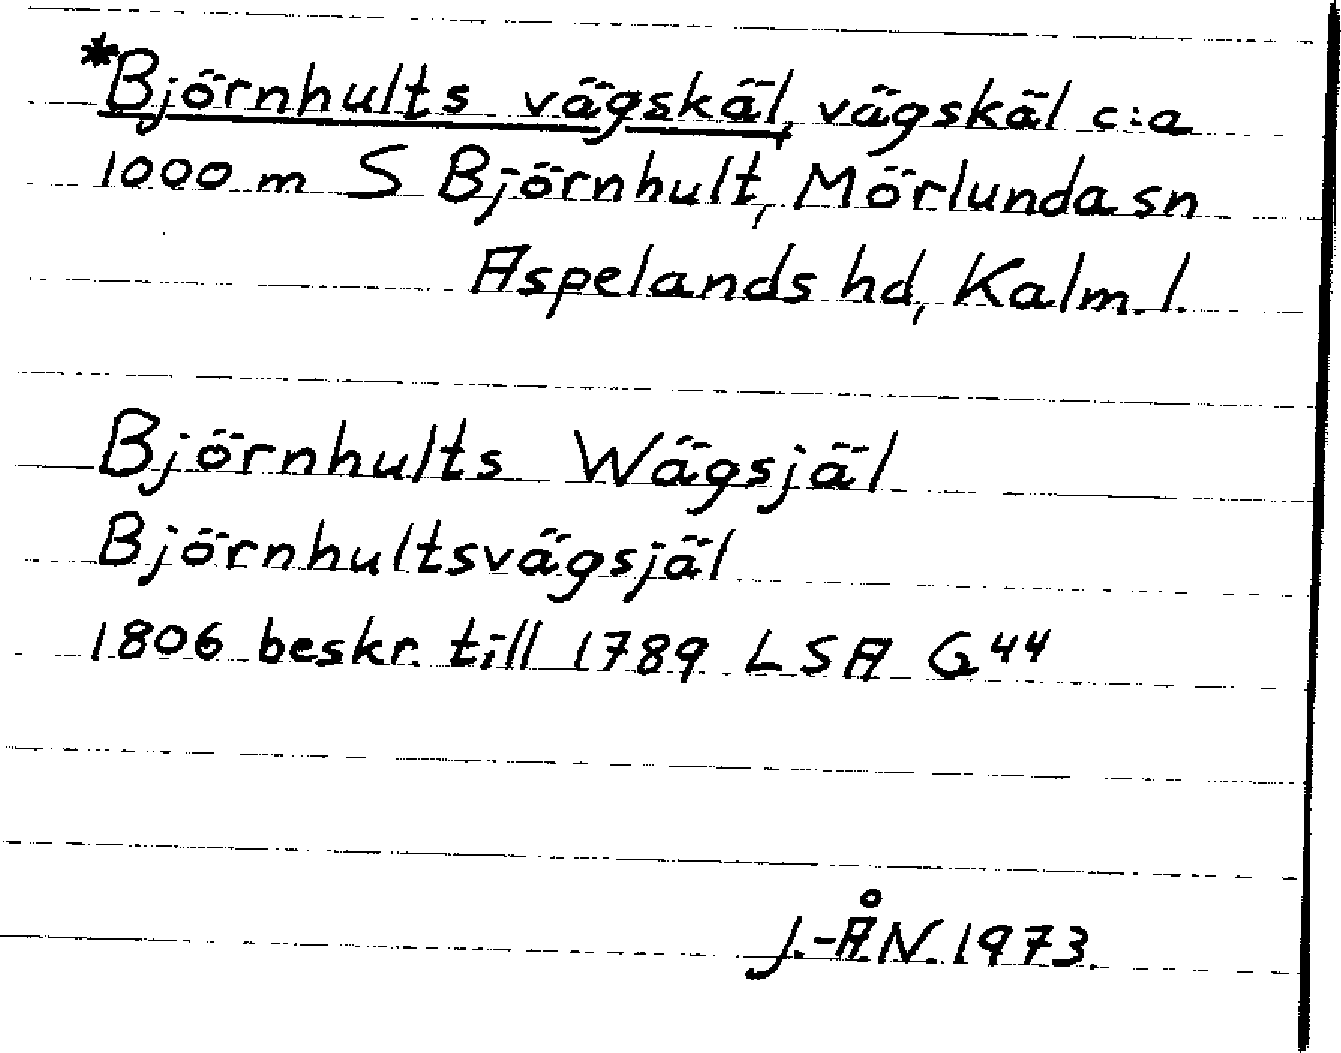 *Björnhults vägskäl, vägskäl c:a
1000 m S Björnhult, Mörlunda sn
Aspelands hd, Kalm. l.
Björnhults Wägsjäl
Björnhultsvägsjäl
1806 beskr. till 1789 LSA G44
J.-Å.N. 1973.